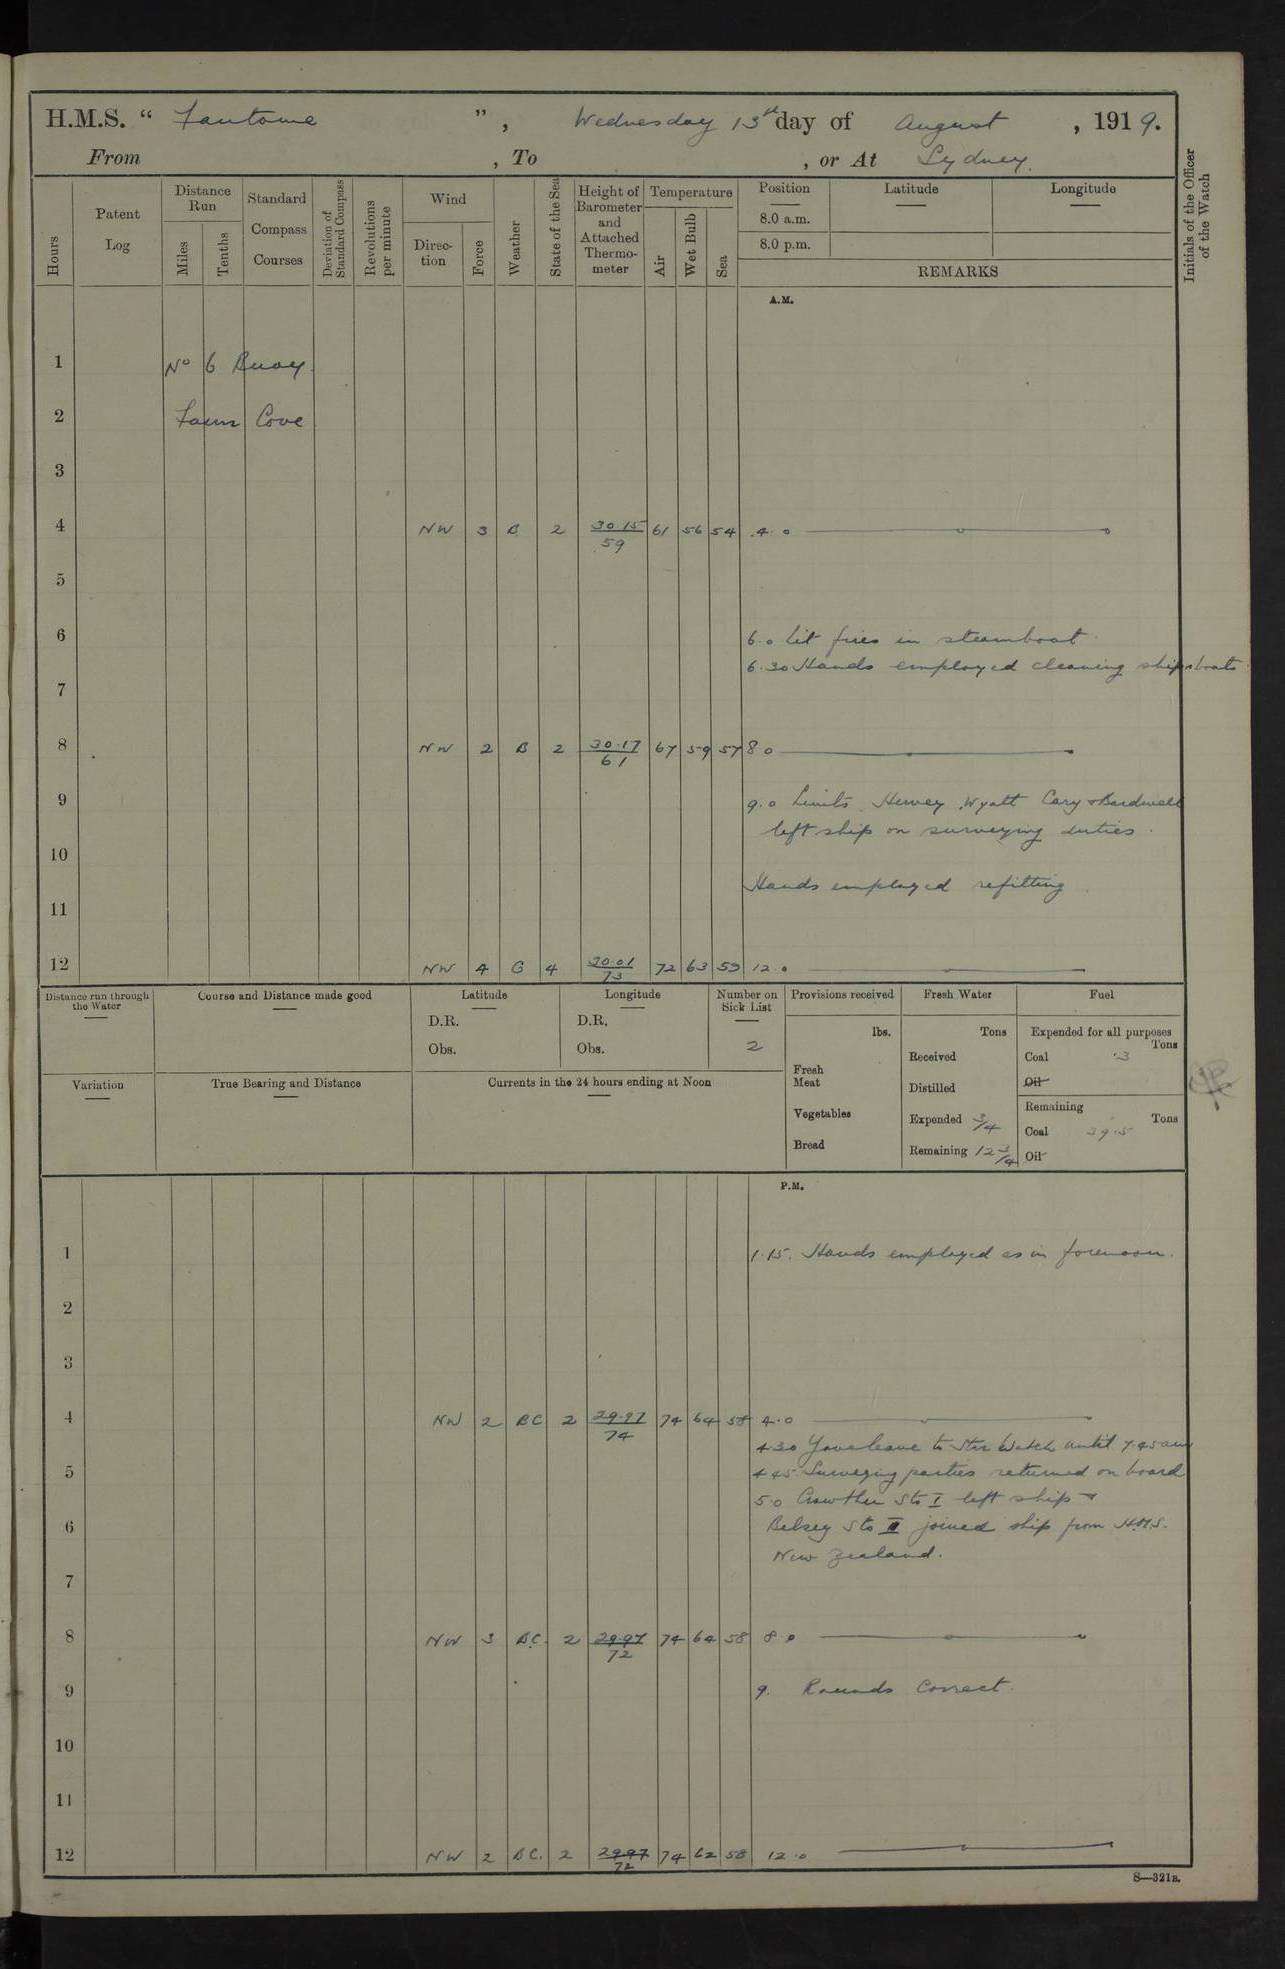 H.M.S. “ Fantome ”, Wednesday 13th day of August, 1919.
From , To , or At Sydney.
Hours
Patent Log
Distance Run
Miles
Tenths
Standard Compass Courses
Deviation of Standard Compass
Revolutions per minute
Wind
Direction
Force
Weather
State of the Sea
Height of Barometer and Attached Thermometer
Temperature
Air
Wet Bulb
Sea
Position
8.0 a.m.
8.0 p.m.
Latitude
Longitude
REMARKS
Initials of the Officer of the Watch
A.M.
1 No 6 Buoy.
2 Farm Cove
3
4 NW 3 B 2 30.15/59 61 56 54 4.0
5
6 6.0 Lit fires in steamboat
6.30 Hands employed cleaning ship & boats
7
8 NW 2 B 2 30.17/61 67 59 57 8.0
9 9.0 Lieuts Hervey, Wyatt Cary & Bardwell
left ship on surveying duties.
10
Hands employed refitting
11
12 NW 4 C 4 30.01/73 72 63 59 12.0
Distance run through the Water
Course and Distance made good
Latitude
D.R.
Obs.
Longitude
D.R.
Obs.
Number on Sick List
2
Provisions received
lbs.
Fresh Meat
Vegetables
Bread
Fresh Water
Tons
Received
Distilled
Expended 3/4
Remaining 12 3/4
Fuel
Expended for all purposes
Tons
Coal .3
Oil
Remaining
Tons
Coal 39.5
Oil
Variation
True Bearing and Distance
Currents in the 24 hours ending at Noon
P.M.
1 1.15. Hands employed as in forenoon.
2
3
4 NW 2 BC 2 29.97/74 74 64 58 4.0
4.30 Gave leave to Stbd Watch until 7.45 am
5 4.45 Surveying parties returned on board
5.0 Crowther Sto I left ship &
6 Belsey Sto II joined ship from H.M.S.
New Zealand.
7
8 NW 3 BC. 2 29.97/72 74 64 58 8.0
9 9. Rounds Correct.
10
11
12 NW 2 BC. 2 29.97/72 74 62 58 12.0
S—321B.